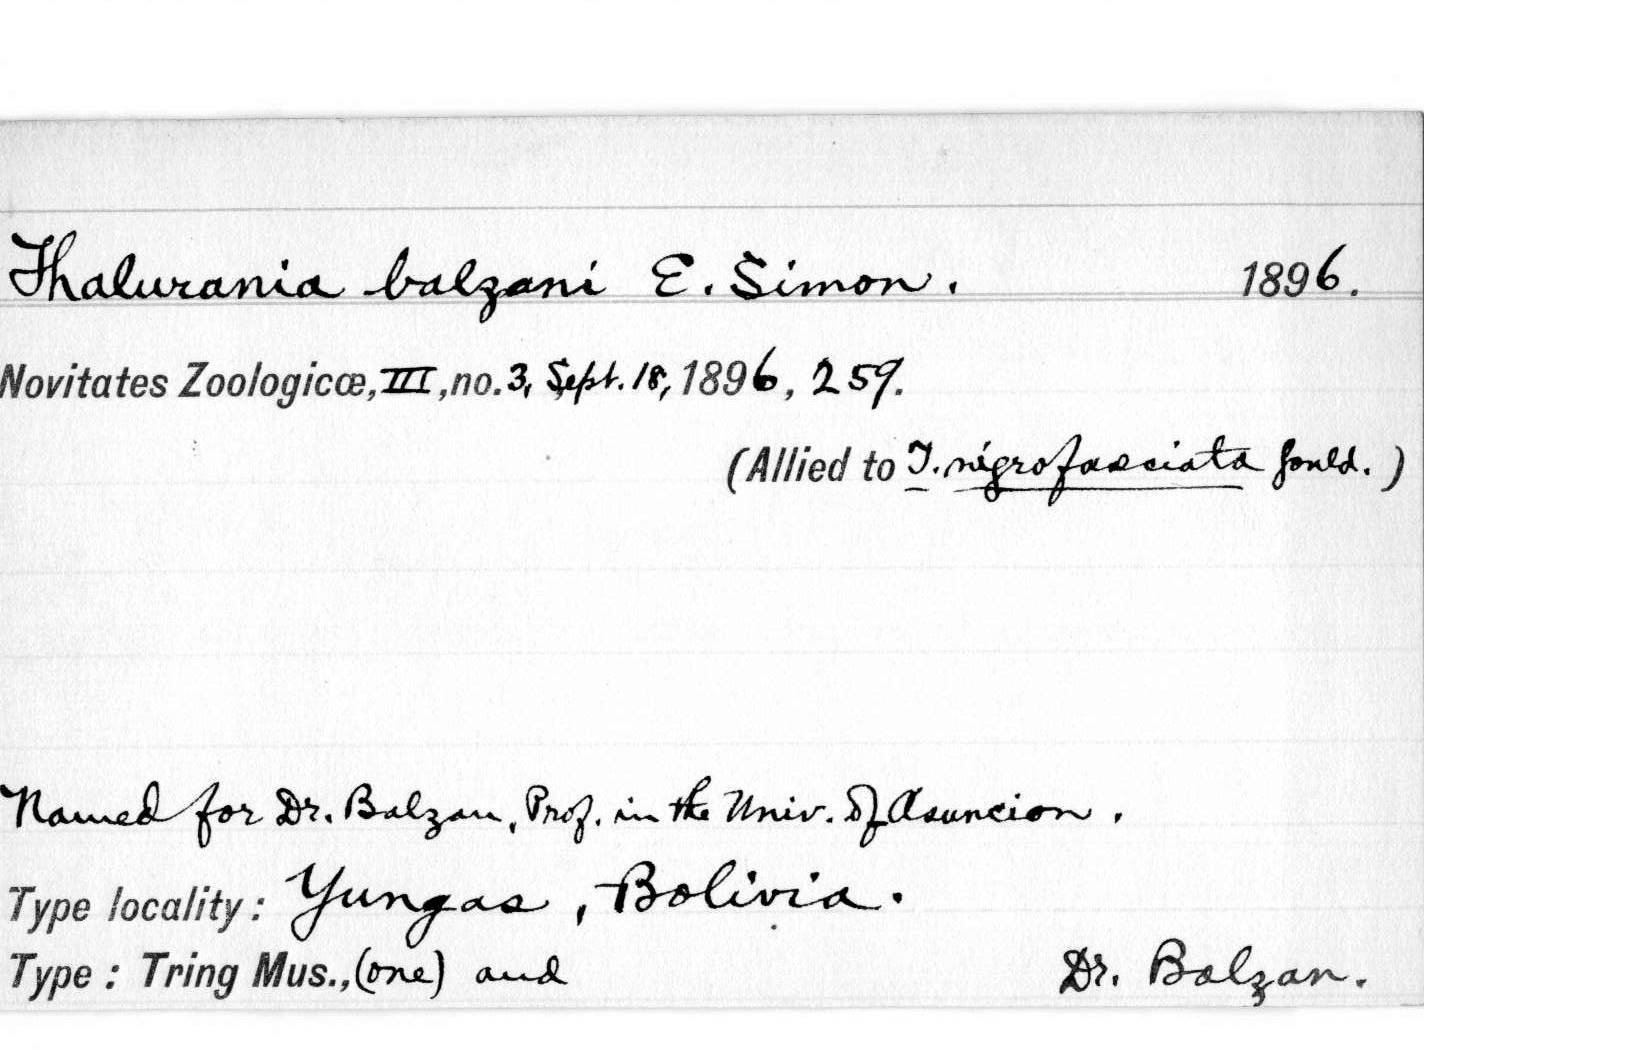 Thalurania balzani E. Simon. 1896.
Novitates Zoologicœ, III, no. 3, Sept. 18, 1896, 259.
(Allied to T. nigrofasciata Gould.)
Named for Dr. Balzan, Prof. in the Univ. of Asuncion.
Type locality: Yungas, Bolivia.
Type: Tring Mus., (one) and Dr. Balzan.